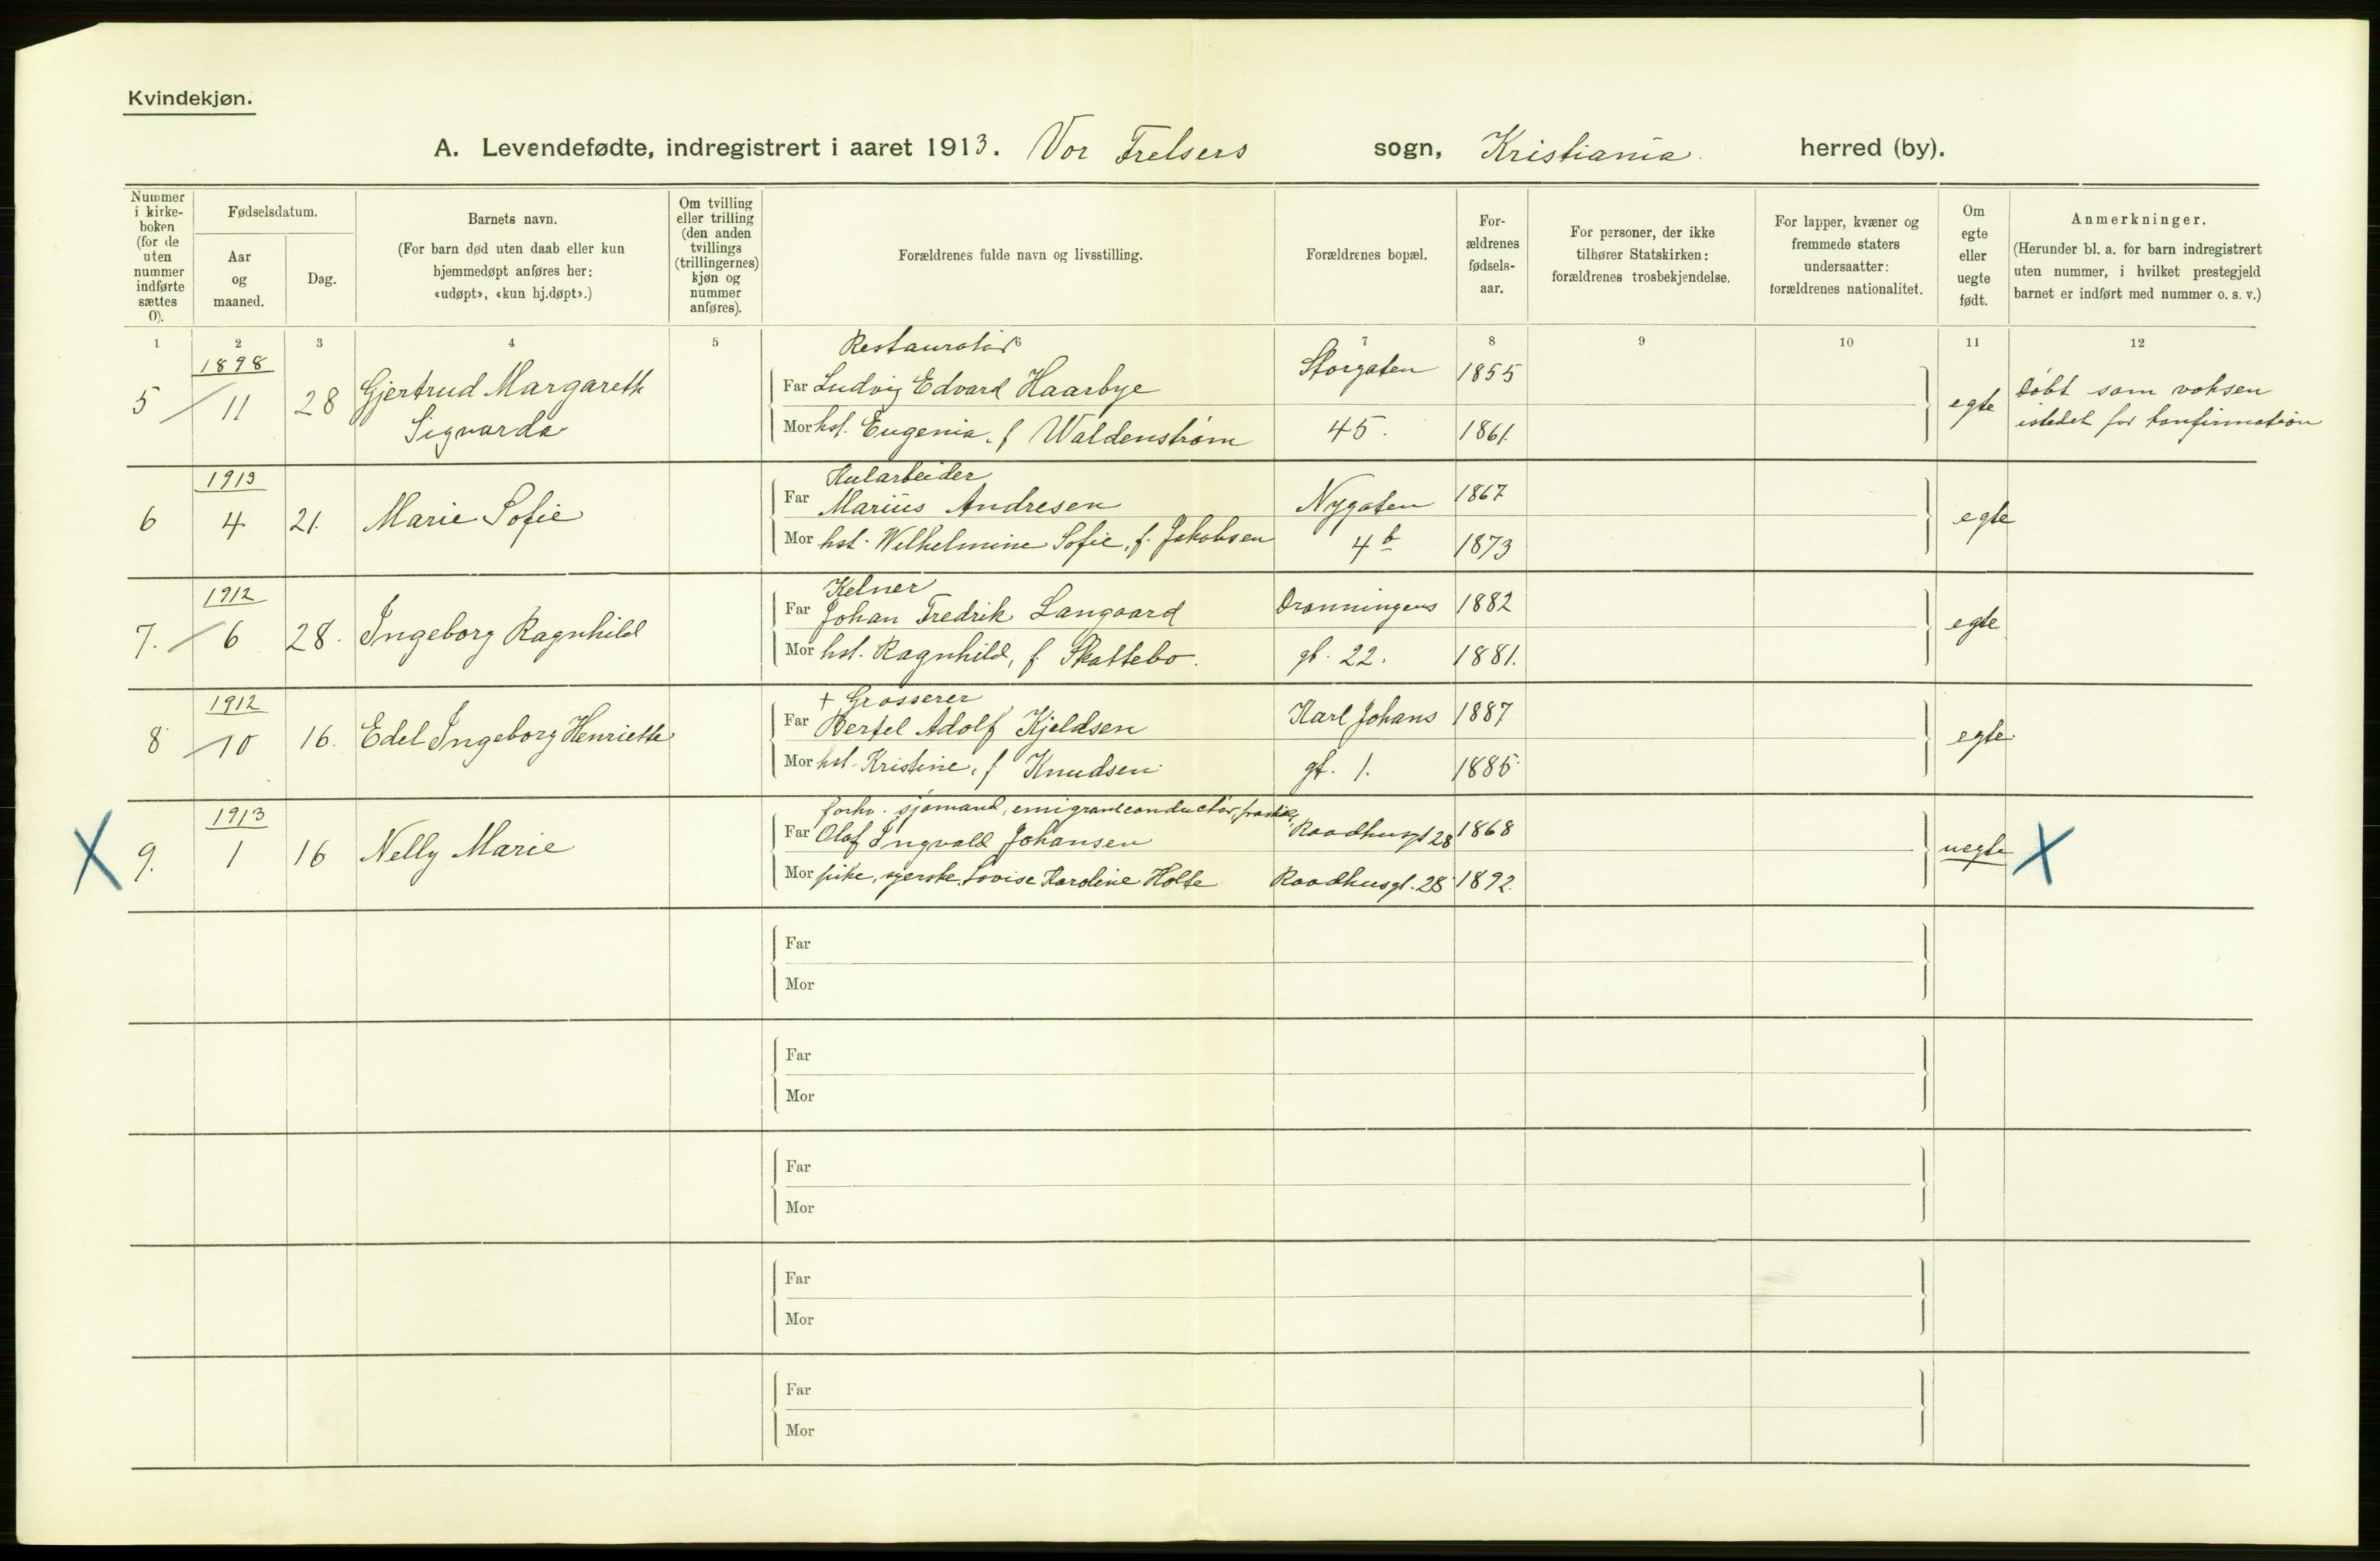 Kvindekjøn.
A. Levendefødte, indregistrert i aaret 1913. Vor Frelsers sogn, Kristiania. herred (by).
Nummer i kirke-boken (for de uten nummer indførte sættes 0).
Fødselsdatum.
Aar og maaned.
Dag.
Barnets navn.
(For barn død uten daab eller kun hjemmedøpt anføres her: «udøpt», «kun hj.døpt».)
Om tvilling eller trilling (den anden tvillings (trillingernes) kjøn og nummer anføres).
Forældrenes fulde navn og livsstilling.
Forældrenes bopæl.
For-ældrenes fødsels-aar.
For personer, der ikke tilhører Statskirken: forældrenes trosbekjendelse.
For lapper, kvæner og fremmede staters undersaatter: forældrenes nationalitet.
Om egte eller uegte født.
Anmerkninger.
(Herunder bl. a. for barn indregistrert uten nummer, i hvilket prestegjeld barnet er indført med nummer o. s. v.)
1 2 3 4 5 6 7 8 9 10 11 12
1898
Restauratør
5 11 28 Gjertrud Margareth Sigvarda
Far Ludvig Edvard Haarbye Storgaten 1855
Mor hst. Eugenia, f Waldenstrøm 45. 1861.
egte Døbt som voksen istedet for konfirmation
1913
6 4 21. Marie Sofie
Far Marius Andresen Nygaten 1867
Mor hst. Wilhelmine Sofie, f. Jakobsen 4b 1873
egte
1912
Kelner
7. 6 28. Ingeborg Ragnhild
Far Johan Fredrik Langaard Dronningens 1882
Mor hst. Ragnhild, f. Skattebo. gt. 22. 1881.
egte
1912
+ Grosserer
8 10 16. Edel Ingeborg Henriette
Far Bertel Adolf Kjeldsen Karl Johans 1887
Mor hst. Kristine, f Knudsen gt. 1. 1885
egte
1913
forhv. sjømand, emigrantconductør,
X 9. 1 16 Nelly Marie
Far Olaf Ingvald Johansen Raadhusgt 28 1868
Mor pike, syerske, Lovise Karoline Holte Raadhusgt. 28 1892.
uegte X
Far
Mor
Far
Mor
Far
Mor
Far
Mor
Far
Mor